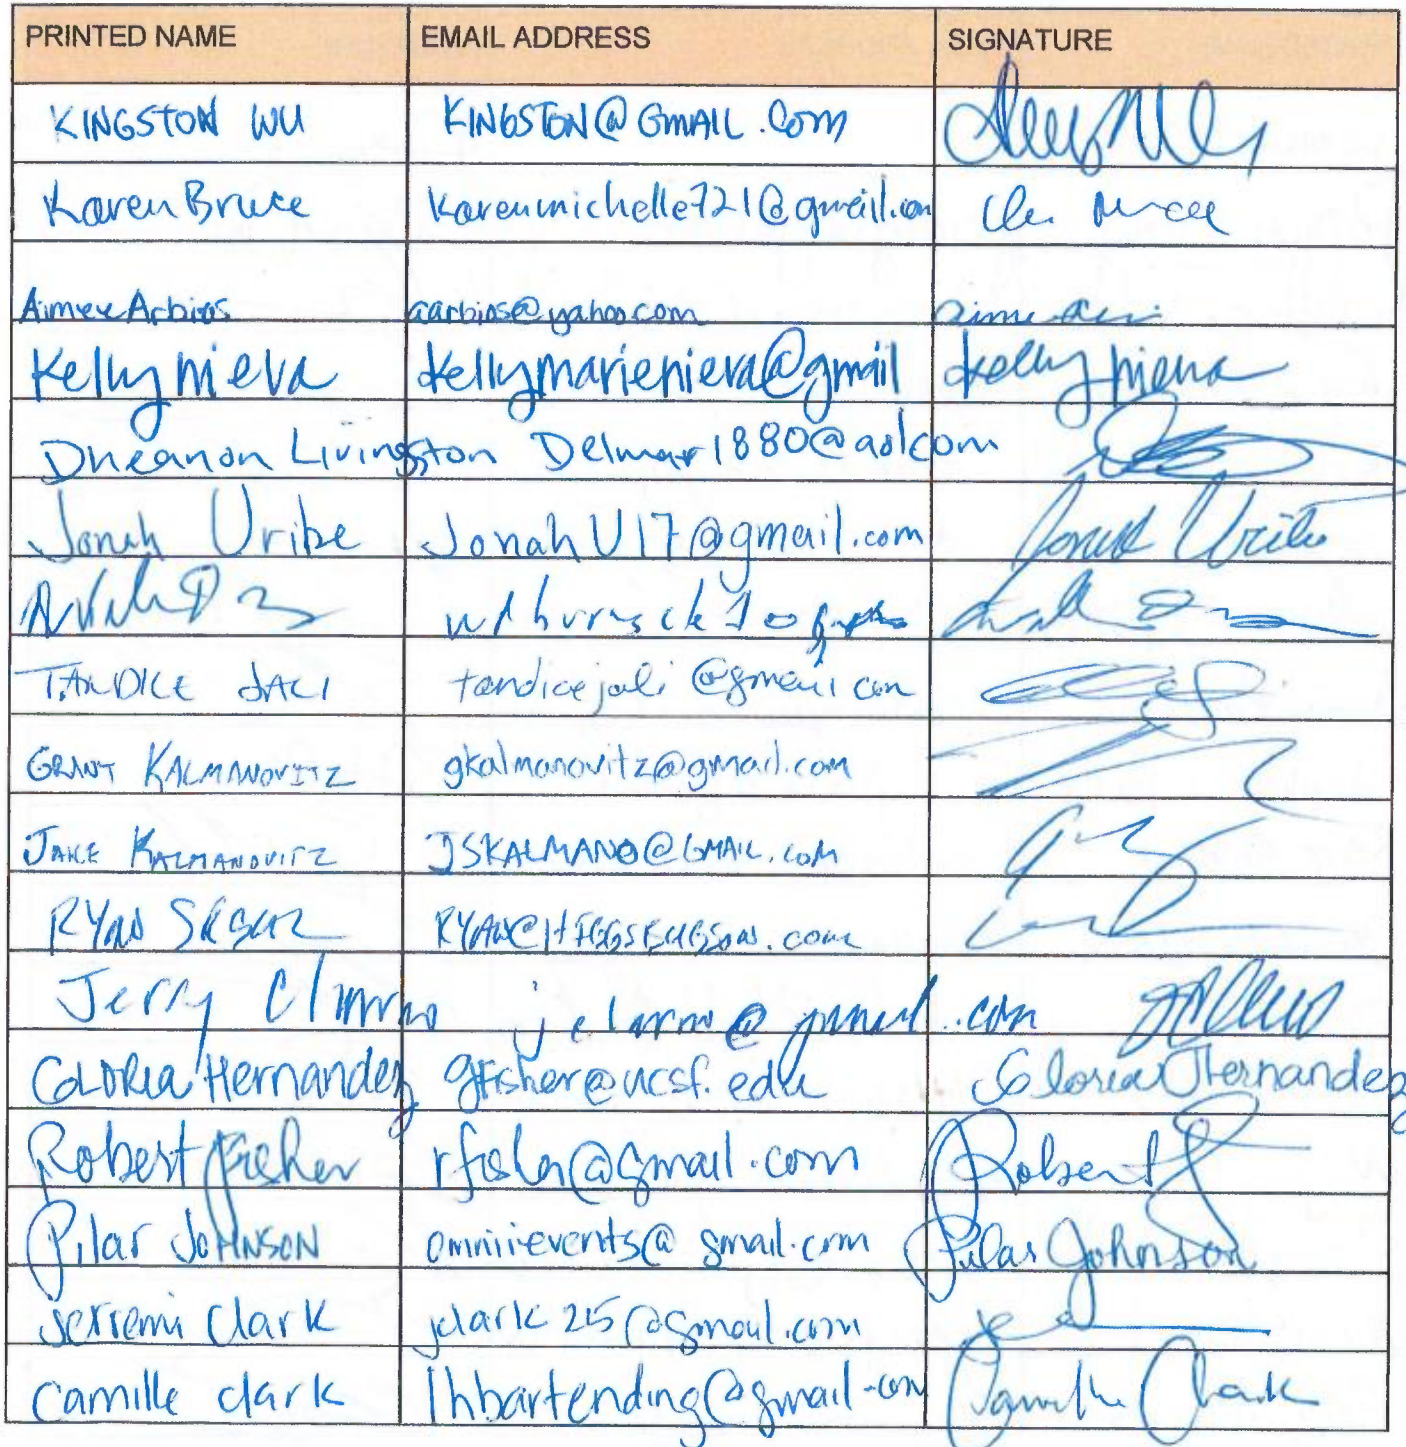 PRINTED NAME EMAIL ADDRESS SIGNATURE
KINGSTON WU KINGSTON@GMAIL.COM
Karen Bruce karenmichelle721@gmail.com
Aimee Arbios aarbios@yahoo.com
Kelly Nieva kellymarienieva@gmail Kelly Nieva
Dheanon Livingston Delmar1880@aol.com
Jonah Uribe JonahU17@gmail.com Jonah Uribe
TANDICE JALI tandicejali@gmail.com
GRANT KALMANOVITZ gkalmanovitz@gmail.com
JAKE KALMANOVITZ JSKALMANO@GMAIL.COM
RYAN
Jerry .com
GLORIA Hernandez gfisher@ucsf.edu Gloria Hernandez
Robert Fisher rfisher@gmail.com Robert
Pilar JOHNSON omniievents@gmail.com Pilar Johnson
Jerremi Clark jclark215@gmail.com
Camille clark lhbartending@gmail.com Camille Clark